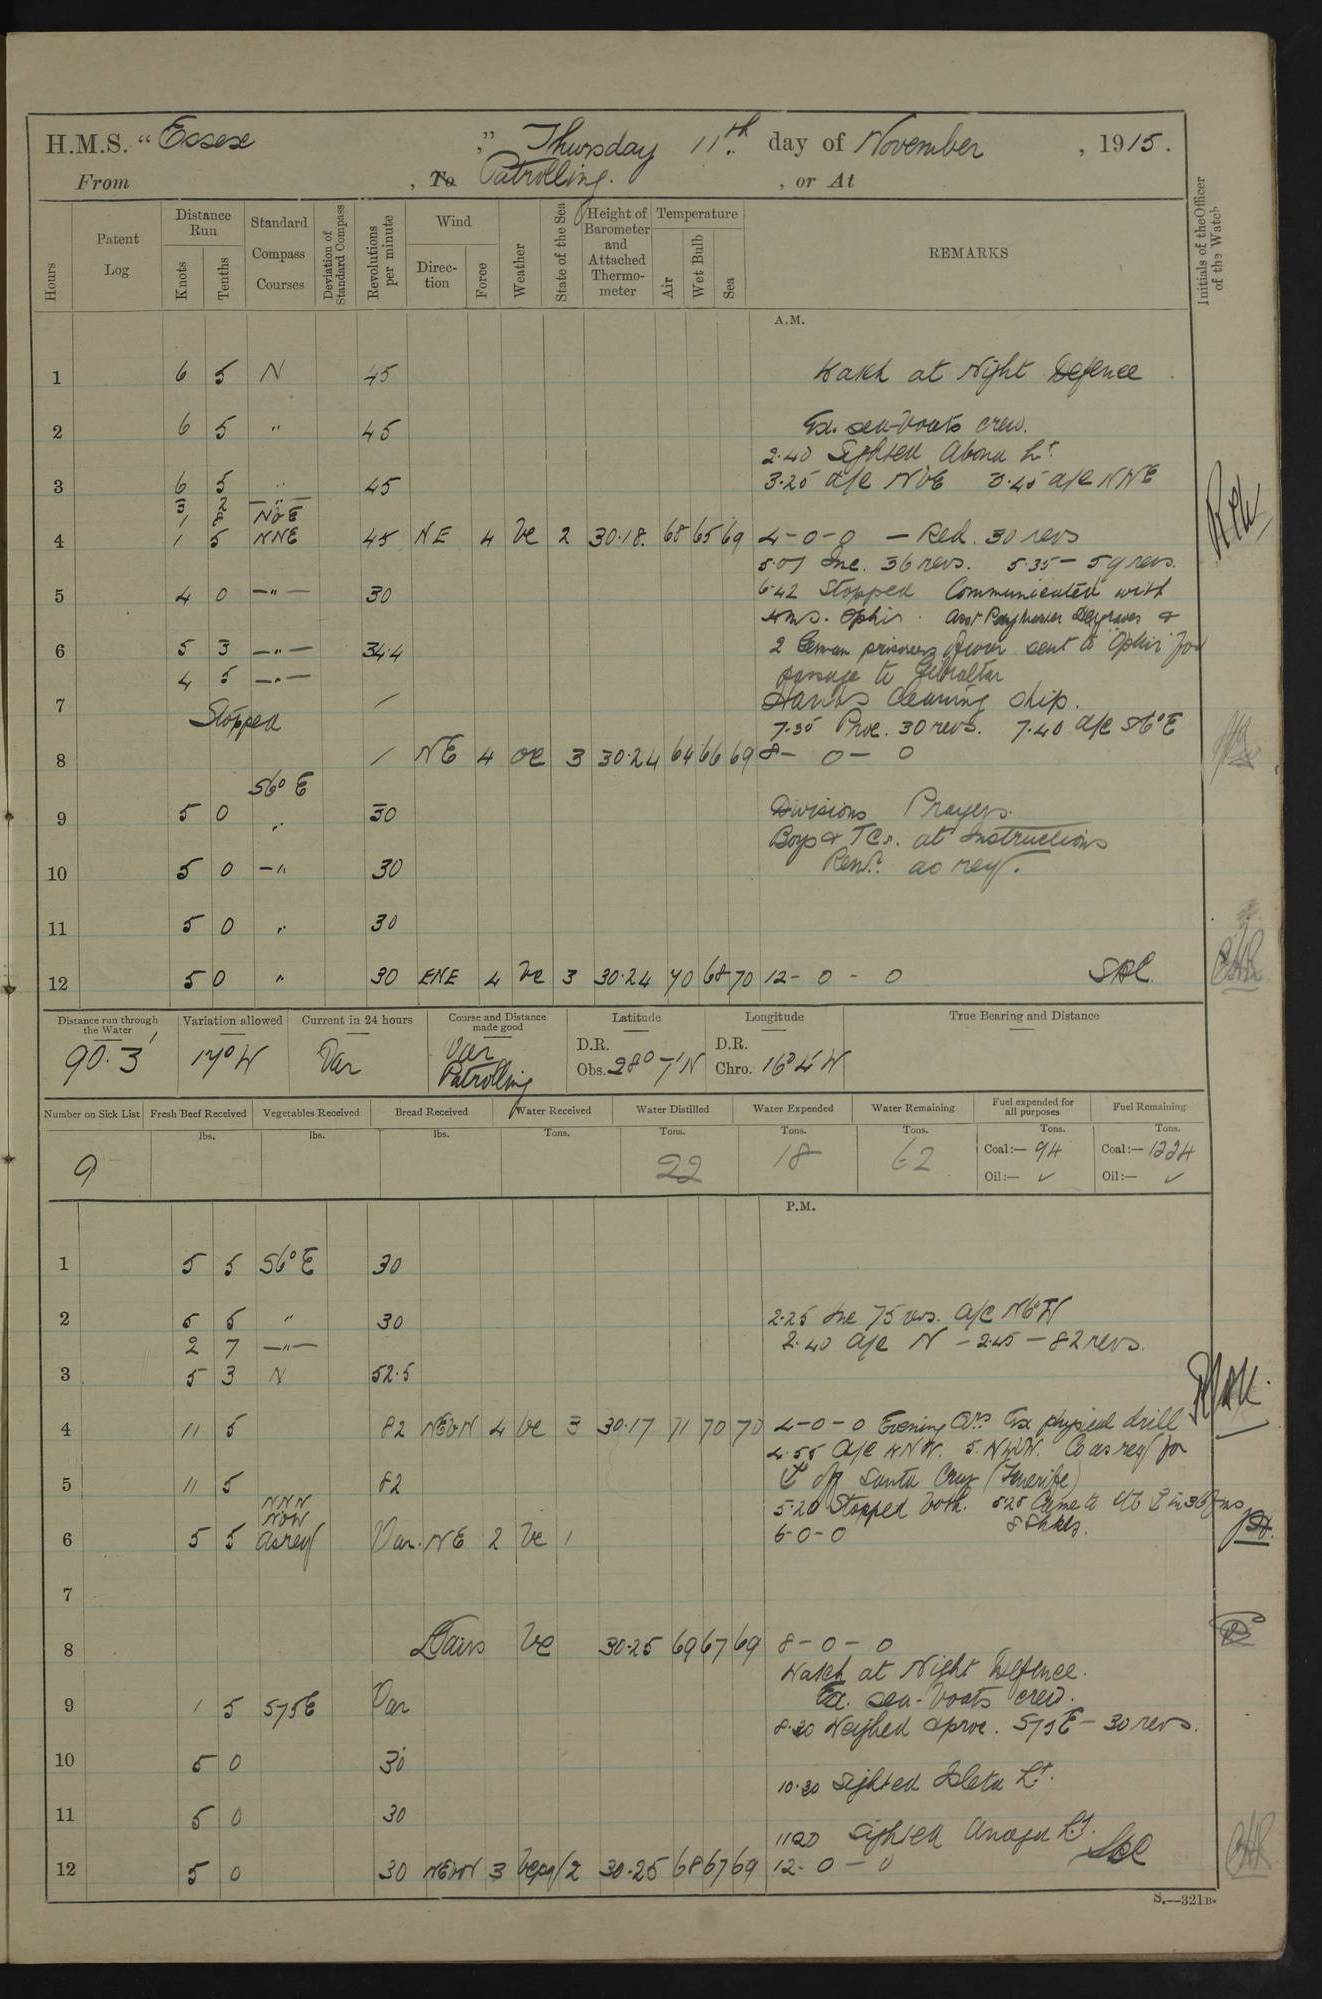 H.M.S. "Essex", Thursday 11th. day of November, 1915.
From , To Patrolling. , or At
Hours
Patent Log
Distance Run
Knots
Tenths
Standard Compass Courses
Deviation of Standard Compass
Revolutions per minute
Wind
Direction
Force
Weather
State of the Sea
Height of Barometer and Attached Thermometer
Temperature
Air
Wet Bulb
Sea
REMARKS
Initials of the Officer of the Watch
A.M.
1 6 5 N 45 Watch at Night Defence
2 6 5 " 45 Ex. sea-boats crew.
2.40 Sighted Abona Lt.
3 6 5 " 45 3.25 a/c NbE 3.45 a/c NNE
3 2 —"—
1 8 NbE
4 1 5 NNE 45 NE 4 bc 2 30.18. 68 65 69 4-0-0 — Red. 30 revs
5.07 Inc. 36 revs. 5.35 — 59 revs.
5 4 0 —"— 30 6.42 Stopped Communicated with
HMS. Ophir. Asst Paymaster &
6 5 3 —"— 34.4 2 German prisoners of war sent to "Ophir" for
4 5 —"— passage to Gibraltar
7 Stopped / Hands cleaning ship.
7.35 Proc. 30 revs. 7.40 a/c S6°E
8 / NE 4 oc 3 30.24 64 66 69 8- 0 - 0
S6° E
9 5 0 " 30 Divisions Prayers.
Boys & TCs. at Instructions
10 5 0 —" 30 Rendr. as req.
11 5 0 " 30
12 5 0 " 30 ENE 4 bc 3 30.24 70 68 70 12- 0 - 0 SDC
Distance run through the Water
90.3'
Variation allowed
17°W
Current in 24 hours
Var
Course and Distance made good
Var
Patrolling
Latitude
D.R.
Obs. 28° 7' N
Longitude
D.R.
Chro. 16° 4' W
True Bearing and Distance
Number on Sick List
9
Fresh Beef Received
lbs.
Vegetables Received
lbs.
Bread Received
lbs.
Water Received
Tons.
Water Distilled
Tons.
22
Water Expended
Tons.
18
Water Remaining
Tons.
62
Fuel expended for all purposes
Tons.
Coal:— 94
Oil:— ✓
Fuel Remaining
Tons.
Coal:— 1224
Oil:— ✓
P.M.
1 5 5 S6° E 30
2 5 5 " 30 2.25 Inc 75 revs. a/c N6°W
2 7 —"— 2.40 a/c N - 2.45 - 82 revs.
3 5 3 N 52.5
4 11 5 82 NEbN 4 bc 3 30.17 71 70 70 4-0-0 Evening Qrs Ex physical drill
4.55 a/c NNW. 5. NWbW. Co as req for
5 11 5 82 off Santa Cruz (Tenerife)
NNW
5.20 Stopped both. 5.25 Came to
6 5 5 As req Var. NE 2 bc 1 6-0-0
7
8 L Airs bc 30.25 69 67 69 8-0-0
Watch at Night Defence.
Ex. sea-boats crew.
9 1 5 S75E Var 8.30 Weighed & proc. S75E - 30 revs.
10 5 0 30
10.30 Sighted Isleta Lt.
11 5 0 30
11.20 Sighted Anaga Lt.
12 5 0 30 NEbN 3 2 30.25 68 67 69 12- 0 - 0 SDC
S.—321B.